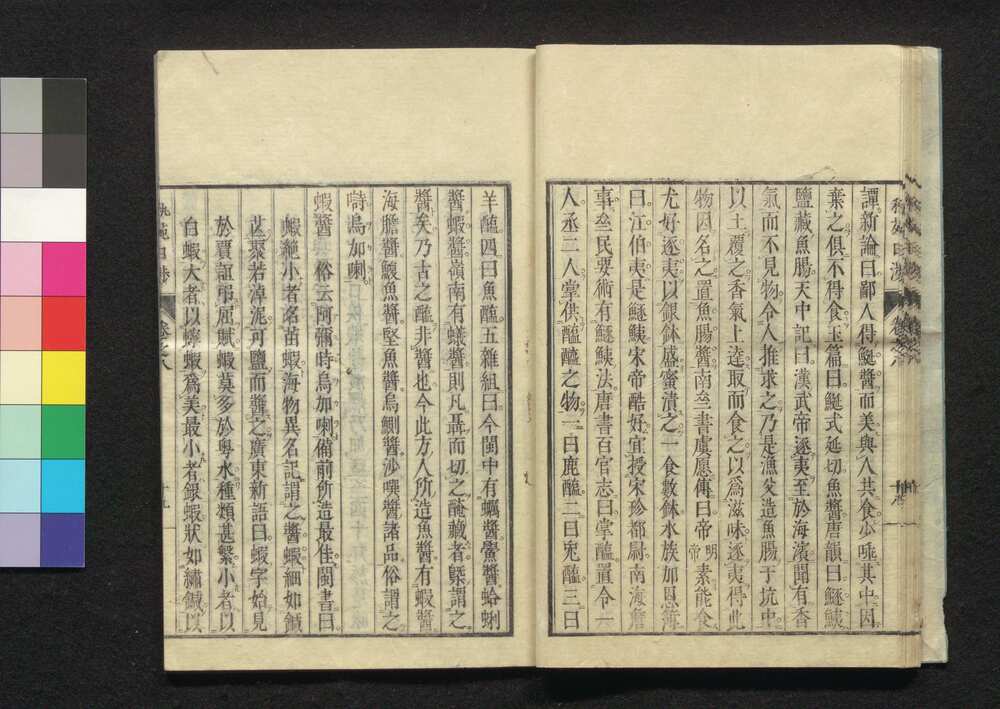 譚新論曰鄙人得鯅醬而美與人共食少唾其中因
棄之俱不得食玉篇曰鯅式延切魚醬唐韻曰鱁鮧
鹽藏魚腸天中記曰漢武帝逐夷至於海濱聞有香
氣而不見物令人推求之乃是漁父造魚腸于坑中
以土覆之香氣上達取而食之以爲滋味逐夷得此
物因名之置魚腸醬南齊書虞愿傳曰帝明帝素能食
尤好逐夷以銀鉢盛蜜漬之一食數鉢水族加恩簿
曰江伯夷是鱁鮧宋帝酷好宜授宋珍都尉南海詹
事齊民要術有鱁鮧法唐書百官志曰掌醢置令一
人丞二人掌供醢醯之物一曰鹿醢二曰兎醢三曰
羊醢四曰魚醢五雜組曰今閩中有蠣醬鱟醬蛤蜊
醬蝦醬嶺南有蟻醬則凡聶而切之醃藏者槩謂之
醬矣乃古之醢非醬也今此方人所造魚醬有蝦醬
海膽醬鰻魚醬堅魚醬烏鰂醬沙噀醬諸品俗謂之
時烏加喇
蝦醬 俗云阿彌時烏加喇備前所造最佳閩書曰
蝦絶小者名苗蝦海物異名記謂之醬蝦細如鍼
芒聚若淖泥可鹽而醬之廣東新語曰蝦字始見
於賈誼弔屈賦蝦莫多於粤水種類甚繁小者以
白蝦大者以蟳蝦爲美最小者銀蝦狀如繡鍼以
卷之八
十九